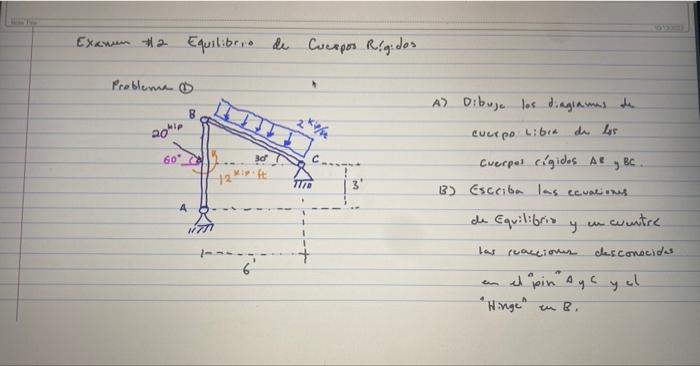 Examen #2 Equilibrio de Cuerpos Rígidos
Problema ①
A) Dibuje los diagramas de
cuerpo libre de los
cuerpos rígidos AB y BC.
B) Escriba las ecuaciones
de Equilibrio y encuentre
las reacciones desconocidas
en el "pin" A y C y el
"Hinge" en B.
B
2 kip/ft
20 kip
60°
30°
C
12 kip·ft
3'
A
6'